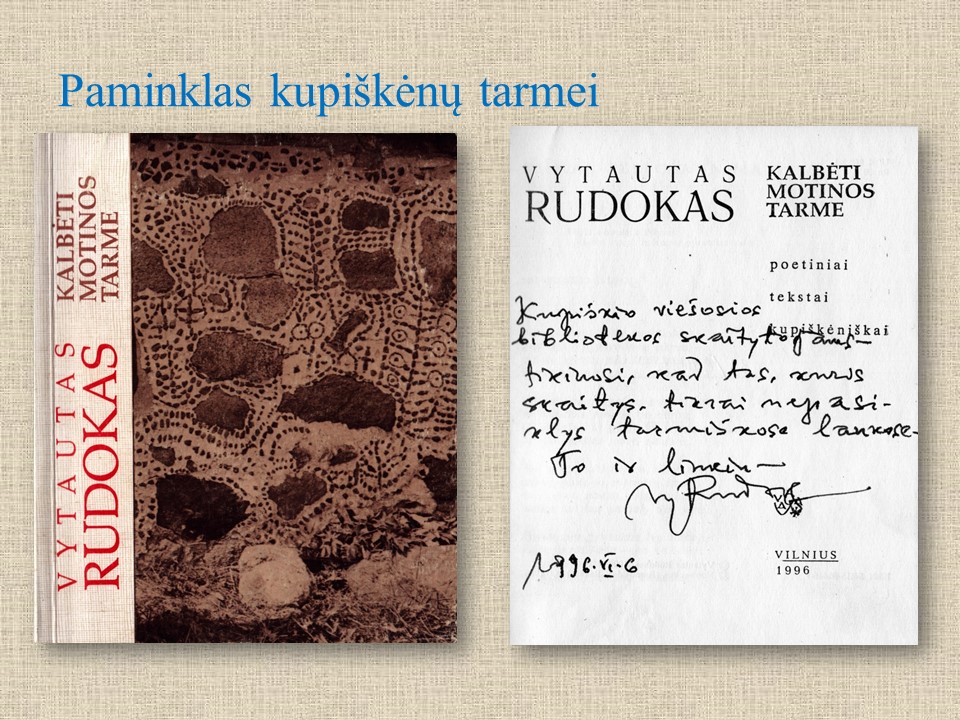 Paminklas kupiškėnų tarmei
VYTAUTAS
RUDOKAS
KALBĖTI
MOTINOS
TARME
VYTAUTAS
RUDOKAS
KALBĖTI
MOTINOS
TARME
poetiniai
tekstai
kupiškėniškai
Kupiškio viešosios
bibliotekos skaitytojams –
tikiuosi, kad tas, kuris
skaitys, tikrai nepasi-
klys tarmiškose lankose.
To ir linkiu –
1996.VI.6
VILNIUS
1996